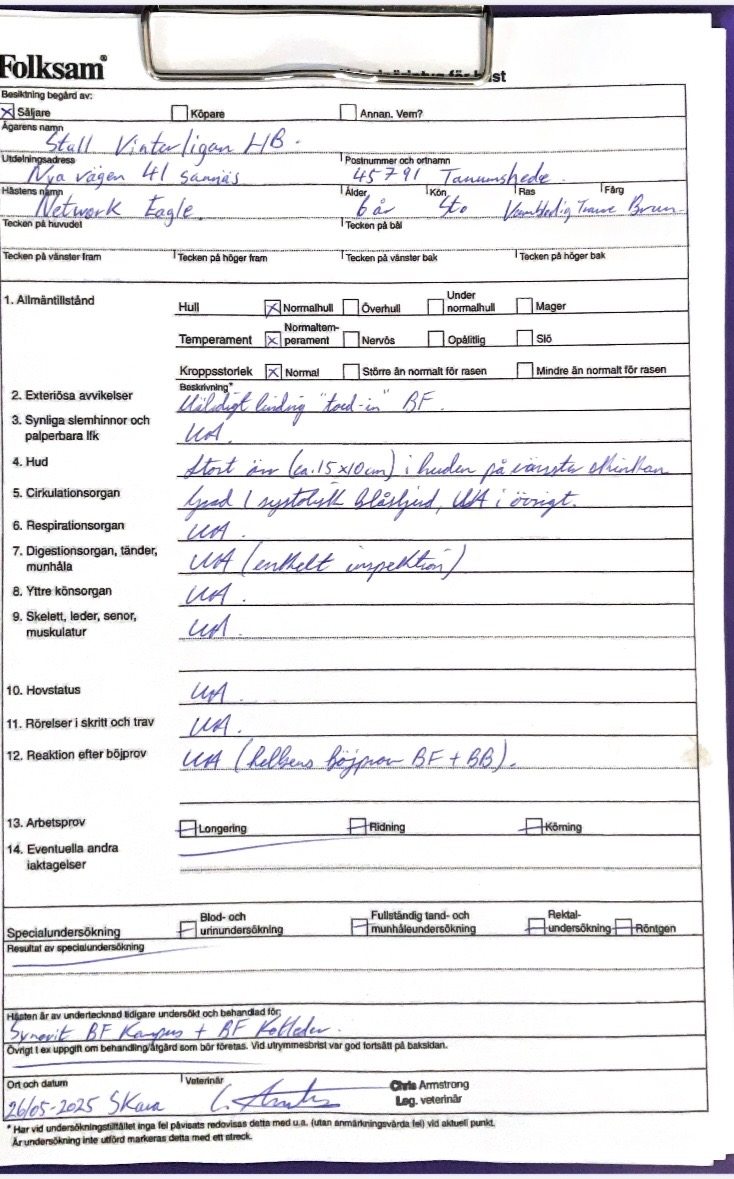 Folksam®
Besiktning begärd av:
Säljare Köpare Annan. Vem?
Ägarens namn
Stall Vinterligan HB.
Utdelningsadress Postnummer och ortnamn
Nya vägen 41 Sannäs 45791 Tanumshede.
Hästens namn Ålder Kön Ras Färg
Network Eagle. 6 år Sto Varmblodig Travare Brun
Tecken på huvudet Tecken på bål
Tecken på vänster fram Tecken på höger fram Tecken på vänster bak Tecken på höger bak
1. Allmäntillstånd
Hull Normalhull Överhull Under normalhull Mager
Temperament Normaltem-perament Nervös Opålitlig Slö
Kroppsstorlek Normal Större än normalt för rasen Mindre än normalt för rasen
Beskrivning*
2. Exteriösa avvikelser Väldigt lindrig "toed-in" BF.
3. Synliga slemhinnor och
palperbara lfk UA.
4. Hud Stort ärr (ca. 15x10cm) i huden på vänster skinkan
5. Cirkulationsorgan Grad 1 systolisk blåsljud, UA i övrigt.
6. Respirationsorgan UA.
7. Digestionsorgan, tänder,
munhåla UA (enkelt inspektion)
8. Yttre könsorgan UA.
9. Skelett, leder, senor,
muskulatur UA.
10. Hovstatus UA.
11. Rörelser i skritt och trav UA.
12. Reaktion efter böjprov UA (helbens böjprov BF + BB).
13. Arbetsprov Longering Ridning Körning
14. Eventuella andra
iaktagelser
Specialundersökning Blod- och urinundersökning Fullständig tand- och munhåleundersökning Rektal-undersökning Röntgen
Resultat av specialundersökning
Hästen är av undertecknad tidigare undersökt och behandlad för:
Synovit BF Karpus + BF Kotleder.
Övrigt t ex uppgift om behandling/åtgärd som bör företas. Vid utrymmesbrist var god fortsätt på baksidan.
Ort och datum Veterinär
26/05-2025 Skara
Chris Armstrong
Leg. veterinär
* Har vid undersökningstillfället inga fel påvisats redovisas detta med u.a. (utan anmärkningsvärda fel) vid aktuell punkt.
Är undersökning inte utförd markeras detta med ett streck.